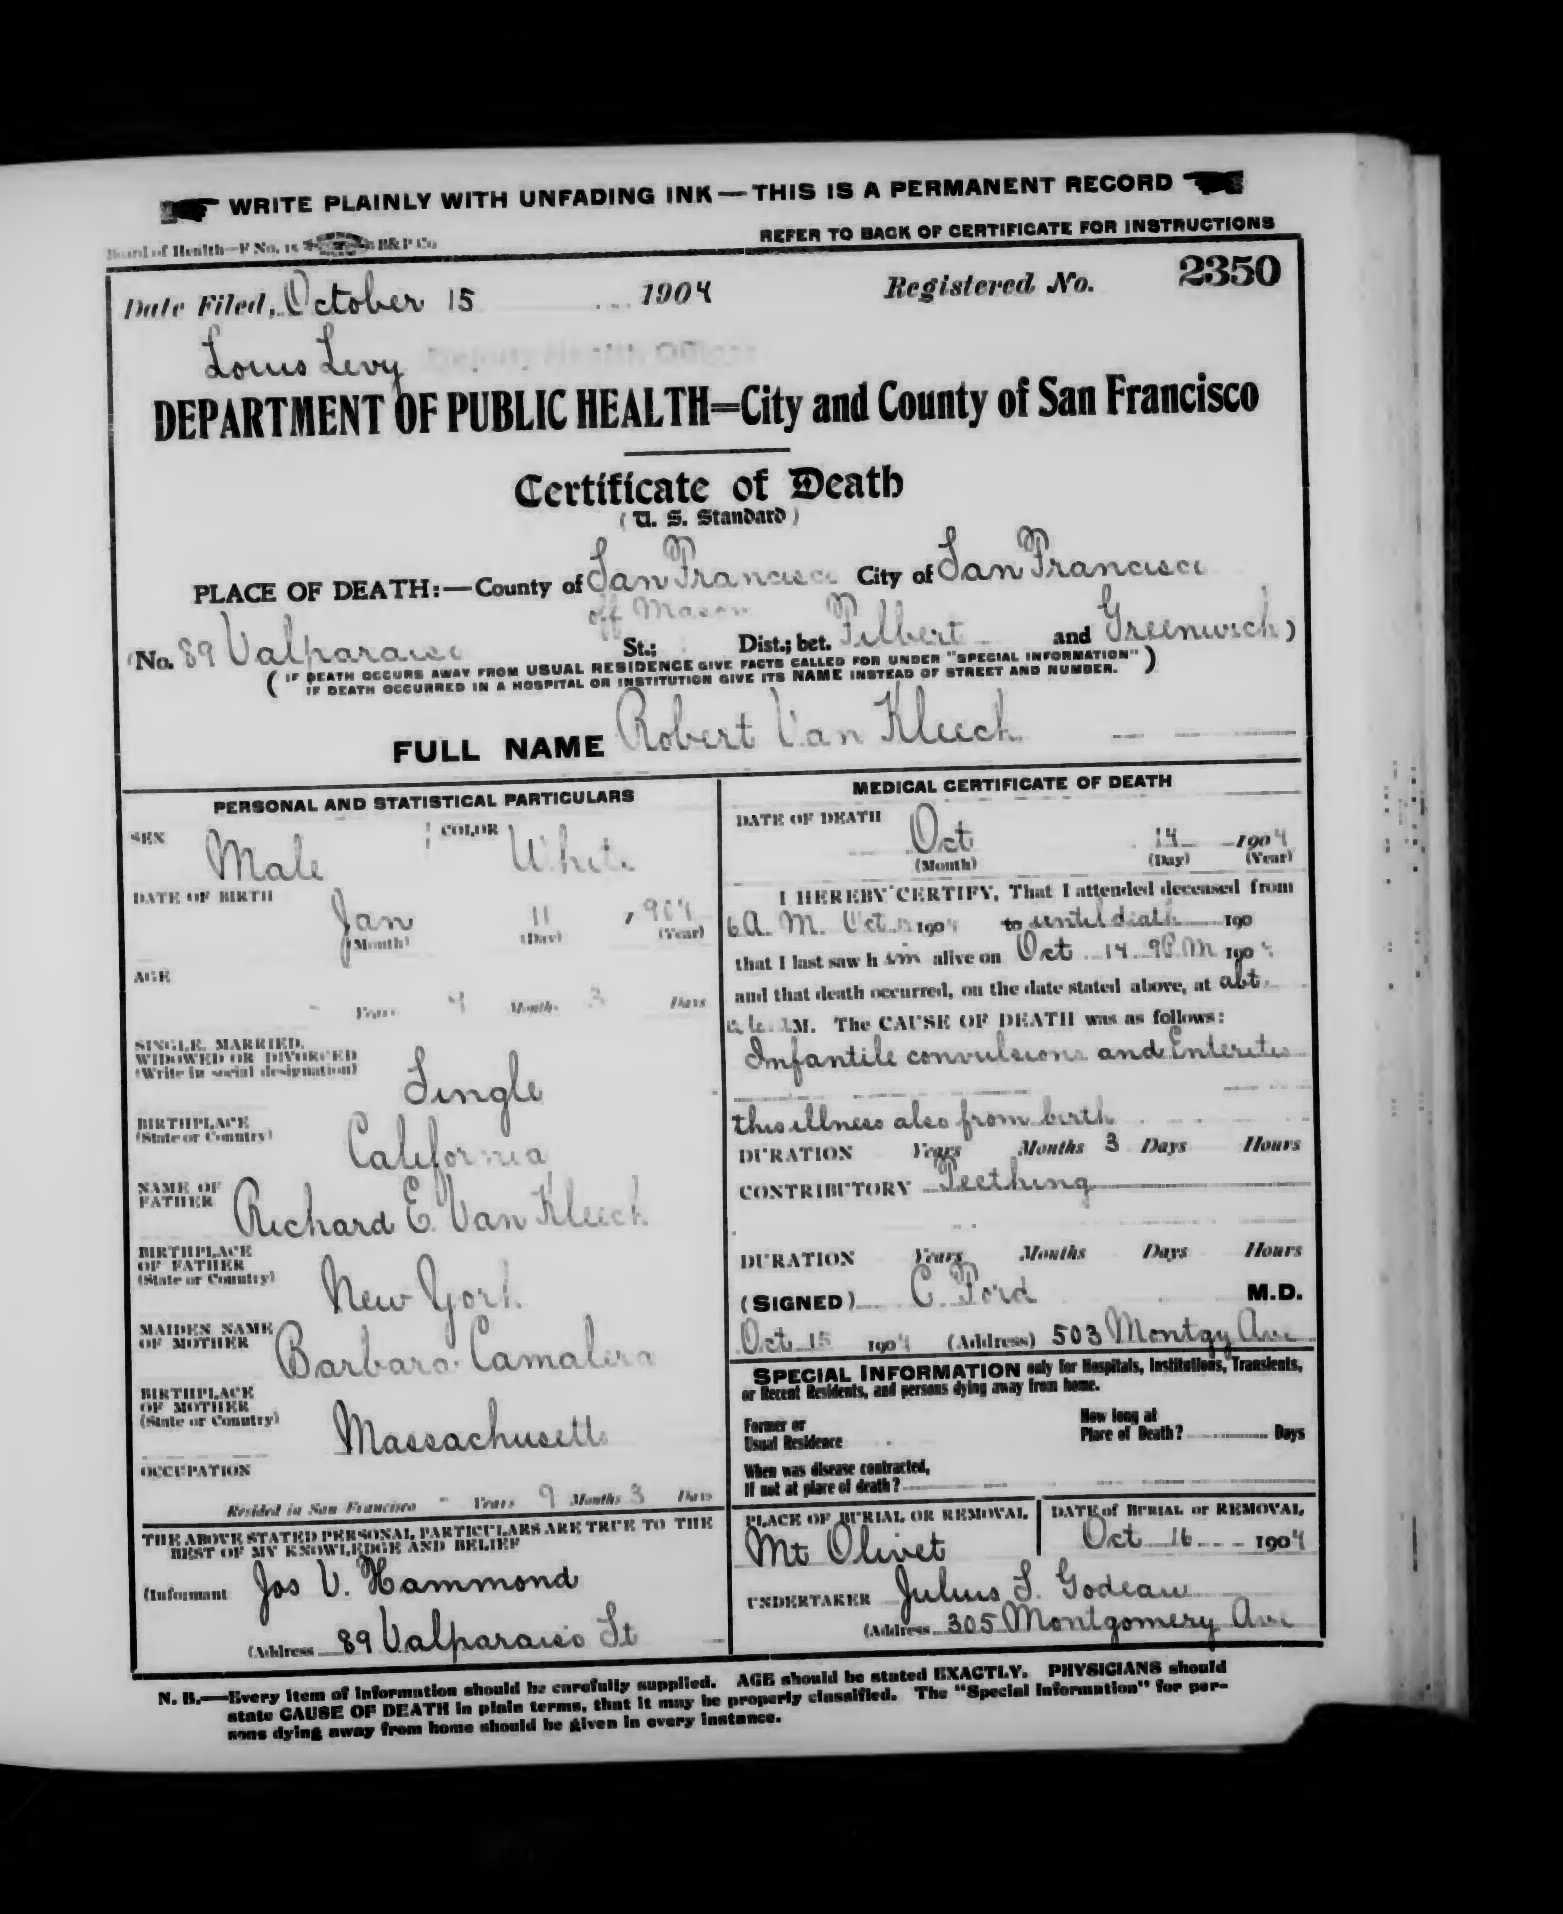 WRITE PLAINLY WITH UNFADING INK—THIS IS A PERMANENT RECORD
Board of Health—F No. 15 B&P Co
REFER TO BACK OF CERTIFICATE FOR INSTRUCTIONS
Date Filed, October 15 1904 Registered No. 2350
Louis Levy Deputy Health Officer
DEPARTMENT OF PUBLIC HEALTH=City and County of San Francisco
Certificate of Death
(U. S. Standard)
PLACE OF DEATH:—County of San Francisco City of San Francisco
off Mason
(No. 89 Valparaiso St.; Dist.; bet. Filbert and Greenwich)
( IF DEATH OCCURS AWAY FROM USUAL RESIDENCE GIVE FACTS CALLED FOR UNDER "SPECIAL INFORMATION" )
IF DEATH OCCURRED IN A HOSPITAL OR INSTITUTION GIVE ITS NAME INSTEAD OF STREET AND NUMBER.
FULL NAME Robert Van Kleeck
PERSONAL AND STATISTICAL PARTICULARS
SEX Male COLOR White
DATE OF BIRTH
Jan 11 1904
(Month) (Day) (Year)
AGE
- Years 9 Months 3 Days
SINGLE, MARRIED,
WIDOWED OR DIVORCED
(Write in social designation)
Single
BIRTHPLACE
(State or Country)
California
NAME OF
FATHER
Richard E. Van Kleeck
BIRTHPLACE
OF FATHER
(State or Country)
New York
MAIDEN NAME
OF MOTHER
Barbara Camalera
BIRTHPLACE
OF MOTHER
(State or Country)
Massachusetts
OCCUPATION
Resided in San Francisco - Years 9 Months 3 Days
THE ABOVE STATED PERSONAL PARTICULARS ARE TRUE TO THE
BEST OF MY KNOWLEDGE AND BELIEF
(Informant Jos V. Hammond
(Address 89 Valparaiso St
MEDICAL CERTIFICATE OF DEATH
DATE OF DEATH
Oct 14 1904
(Month) (Day) (Year)
I HEREBY CERTIFY, That I attended deceased from
6 A. M. Oct. 1904 to until death 190
that I last saw him alive on Oct 14 9 P.M 190
and that death occurred, on the date stated above, at abt.
M. The CAUSE OF DEATH was as follows:
Infantile convulsions and Enteretis
this illness also from birth
DURATION Years Months 3 Days Hours
CONTRIBUTORY Teething
DURATION Years Months Days Hours
(SIGNED) C. Ford M.D.
Oct 15 1904 (Address) 503 Montgy Ave
SPECIAL INFORMATION only for Hospitals, Institutions, Transients,
or Recent Residents, and persons dying away from home.
Former or
Usual Residence
How long at
Place of Death? Days
When was disease contracted,
If not at place of death?
PLACE OF BURIAL OR REMOVAL
Mt Olivet
DATE of BURIAL or REMOVAL
Oct 16 1904
UNDERTAKER Julius S. Godeau
(Address 305 Montgomery Ave
N. B.—Every item of information should be carefully supplied. AGE should be stated EXACTLY. PHYSICIANS should
state CAUSE OF DEATH in plain terms, that it may be properly classified. The "Special Information" for per-
sons dying away from home should be given in every instance.